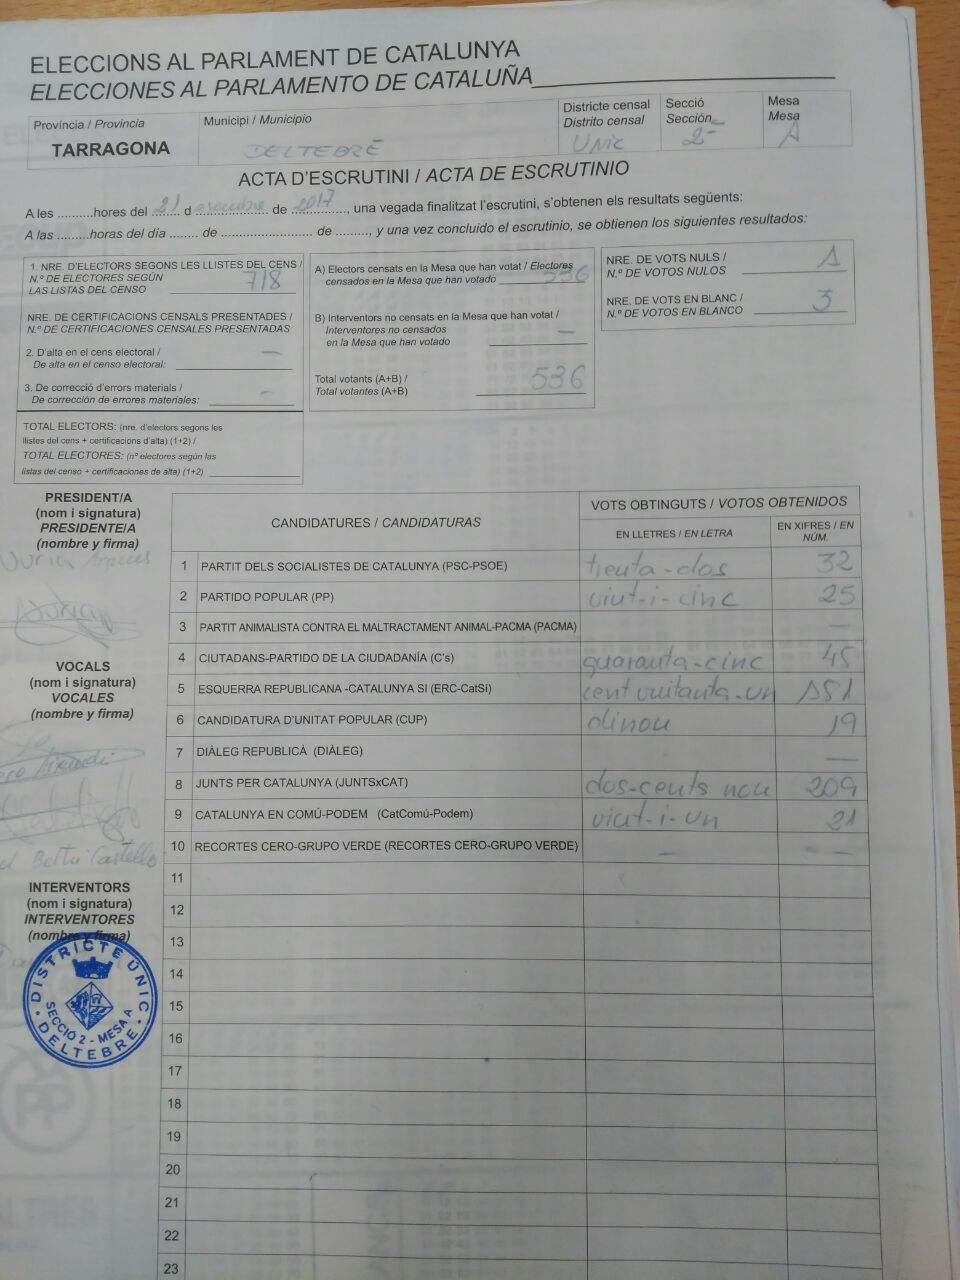 ELECCIONS AL PARLAMENT DE CATALUNYA
ELECCIONES AL PARLAMENTO DE CATALUÑA
Província / Provincia
TARRAGONA
Municipi / Municipio
DELTEBRE
Districte censal
Distrito censal
UNIC
Secció
Sección
2
Mesa
Mesa
A
ACTA D'ESCRUTINI / ACTA DE ESCRUTINIO
A les ..........hores del 21 d desembre de 2017, una vegada finalitzat l'escrutini, s'obtenen els resultats següents:
A las .........horas del día ........ de .......................... de ........., y una vez concluido el escrutinio, se obtienen los siguientes resultados:
1. NRE. D'ELECTORS SEGONS LES LLISTES DEL CENS /
N.º DE ELECTORES SEGÚN
LAS LISTAS DEL CENSO 718
NRE. DE CERTIFICACIONS CENSALS PRESENTADES /
N.º DE CERTIFICACIONES CENSALES PRESENTADAS
2. D'alta en el cens electoral /
De alta en el censo electoral: —
3. De correcció d'errors materials /
De corrección de errores materiales: -
TOTAL ELECTORS: (nre. d'electors segons les
llistes del cens + certificacions d'alta) (1+2) /
TOTAL ELECTORES: (nº electores según las
listas del censo + certificaciones de alta) (1+2)
A) Electors censats en la Mesa que han votat / Electores
censados en la Mesa que han votado 536
B) Interventors no censats en la Mesa que han votat /
Interventores no censados
en la Mesa que han votado —
Total votants (A+B) /
Total votantes (A+B) 536
NRE. DE VOTS NULS /
N.º DE VOTOS NULOS 1
NRE. DE VOTS EN BLANC /
N.º DE VOTOS EN BLANCO 3
PRESIDENT/A
(nom i signatura)
PRESIDENTE/A
(nombre y firma)
VOCALS
(nom i signatura)
VOCALES
(nombre y firma)
INTERVENTORS
(nom i signatura)
INTERVENTORES
(nombre y firma)
DISTRICTE ÚNIC
SECCIÓ 2 - MESA A
DELTEBRE
CANDIDATURES / CANDIDATURAS
VOTS OBTINGUTS / VOTOS OBTENIDOS
EN LLETRES / EN LETRA
EN XIFRES / EN
NÚM.
1 PARTIT DELS SOCIALISTES DE CATALUNYA (PSC-PSOE) trenta-dos 32
2 PARTIDO POPULAR (PP) vint-i-cinc 25
3 PARTIT ANIMALISTA CONTRA EL MALTRACTAMENT ANIMAL-PACMA (PACMA) —
4 CIUTADANS-PARTIDO DE LA CIUDADANÍA (C's) quaranta-cinc 45
5 ESQUERRA REPUBLICANA -CATALUNYA SI (ERC-CatSí) cent vuitanta-un 181
6 CANDIDATURA D'UNITAT POPULAR (CUP) dinou 19
7 DIÀLEG REPUBLICÀ (DIÀLEG) —
8 JUNTS PER CATALUNYA (JUNTSxCAT) dos-cents nou 209
9 CATALUNYA EN COMÚ-PODEM (CatComú-Podem) vint-i-un 21
10 RECORTES CERO-GRUPO VERDE (RECORTES CERO-GRUPO VERDE) — --
11
12
13
14
15
16
17
18
19
20
21
22
23